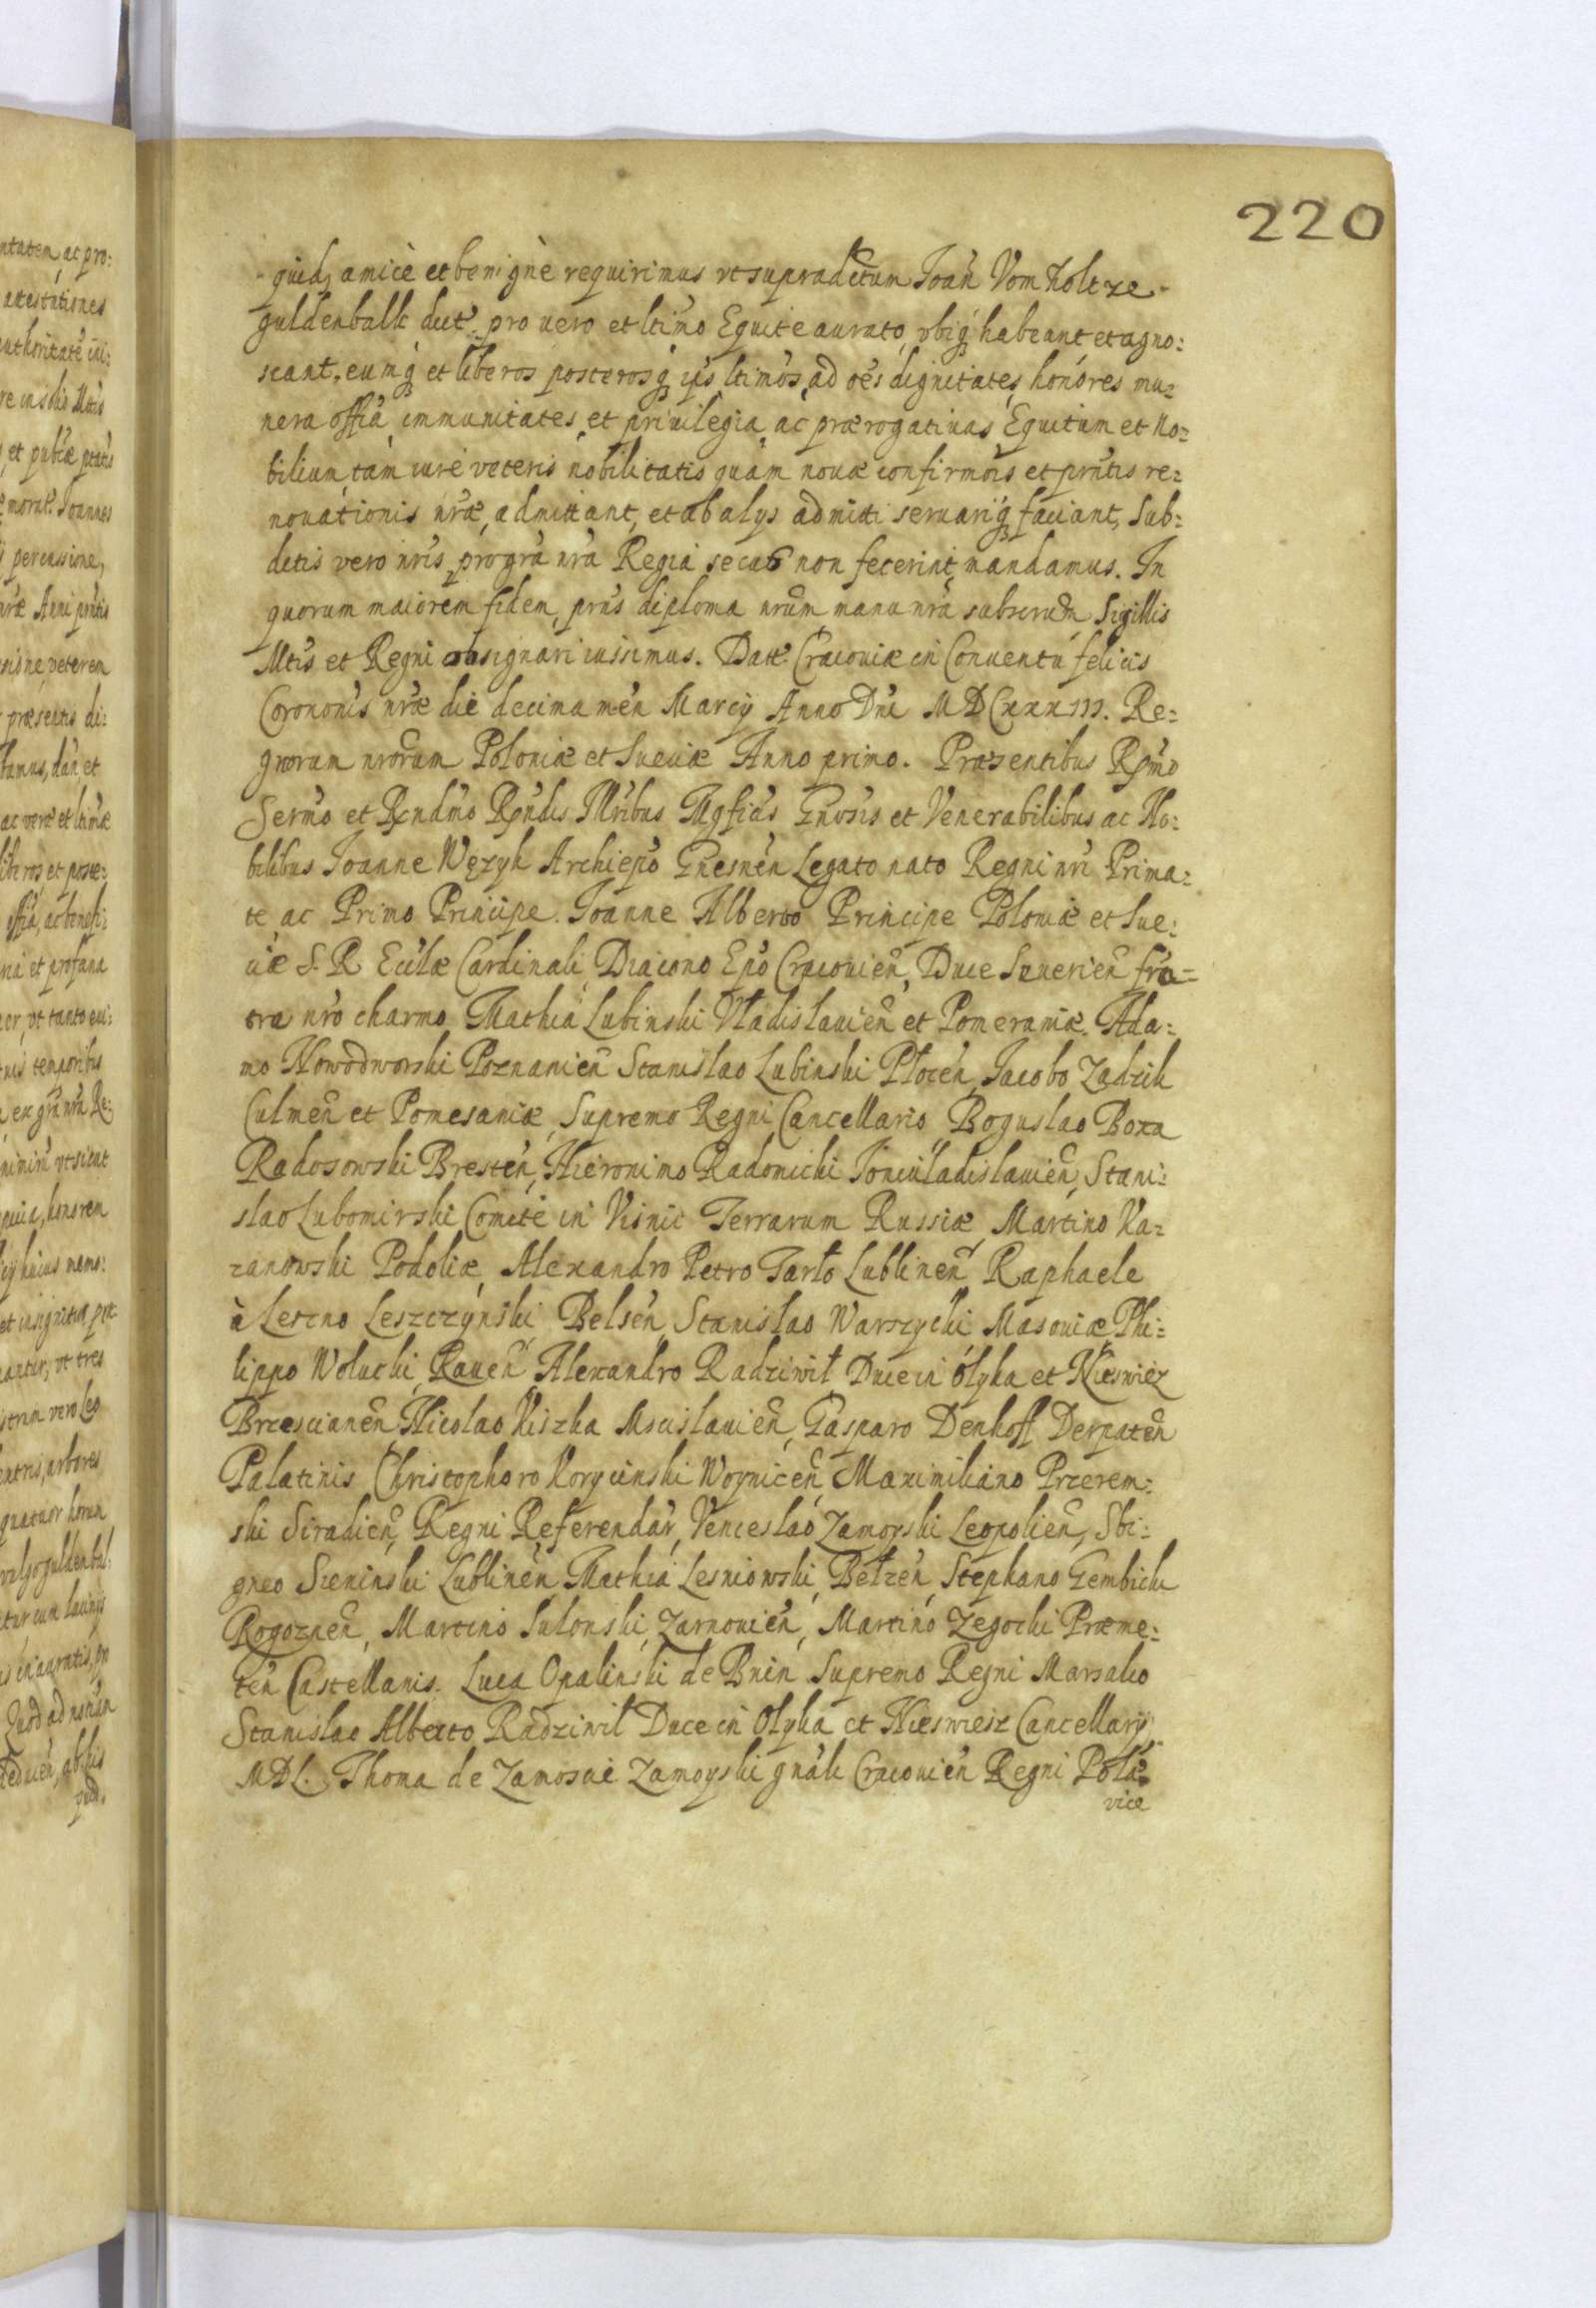 220
quid, amicè et benignè requirimus vt supradictum Joan̄ Vom holtze
guldenbalk dict̃. pro vero et ltimo Equite aurato, vbiq̨ habeant et agno:
scant. eumq̨ et liberos posterosq̨ ip̄s ltimos, ad oēs dignitates, honores mu:
nera offia immunitates, et priuilegia, ac prærogatiuas Equitum et No:
bilium, tam iure veteris nobilitatis quàm nouæ confirmōis et prntis re:
nouationis nræ, admittant, et ab alys admitti seruariq̨ faciant, Sub:
ditis vero nris, pro gra nra Regia secus non fecerint, mandamus. In
quorum maiorem fidem, prns diploma nrum manu nra subscrum Sigillis
Mtis et Regni obsignari iussimus. Datt. Cracouiæ in Conuentu felicis
Corononis nræ die decima men Marcy Anno Dni MDCxxxiii. Re:
gnorum nrorum Poloniæ et Sueciæ Anno primo. Præsentibus Rssmo
Sermo et Rendmo Rendis Illribus Mgficis Gnosis et Venerabilibus ac No:
bilibus Joanne Węzyk Archiepo Gnesnen Legato nato Regni nri Prima:
te, ac Primo Principe. Joanne Alberto Principe Poloniæ et Sue:
ciæ S. R. Ecclæ Cardinali, Diacono Epo Cracouien, Duce Seuerien fra=
tre nro charmo, Mathia Lubinski Vladislauien et Pomeraniæ. Ada:
mo Nowodworski Poznanien Stanislao Lubinski Płocen, Jacobo Zadzik
Culmen et Pomesaniæ, Supremo Regni Cancellario Boguslao Boxa
Radosowski Bresten, Hieronimo Radomicki Joniuladislauien, Stani:
slao Lubomirski Comite in Visnic Terrarum Russiæ, Martino Ka:
zanowski Podoliæ, Alexandro Petro Tarło Lublinen Raphaele
à Leszno Leszczynski Belsen, Stanislao Warszycki Masouiæ, Phi:
lippo Wołucki, Rauen Alexandro Radziwił Duce in Ołyka et Nieswiez
Brzescianen Nicolao Kiszka Mscislauien, Gasparo Denhoff Derpaten
Palatinis Christophoro Korycinski Woynicen, Maximiliano Przerem:
ski Siradien, Regni Referendar, Venceslao Zamorski Leopolien, Sbi:
gneo Sieninski Lublinen, Mathia Lesniowski, Bełzen, Stephano Gembicki
Rogoznen, Martino Sulonski, Zarnouien, Martino Zegocki Præme:
ten Castellanis. Luca Opalinski de Bnin Supremo Regni Marsalco
Stanislao Alberto Radziwił Duce in Ołyka et Nieswiesz Cancellary,
MDL. Thoma de Zamoscie Zamoyski gnali Cracouien Regni Pola:
vice